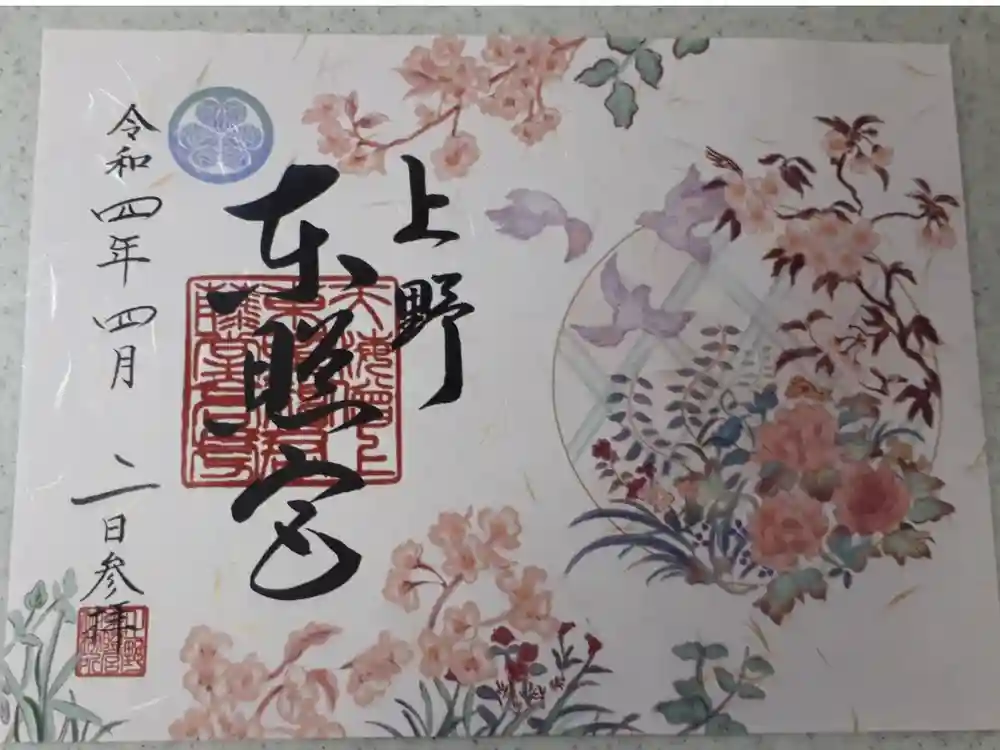 上野
東照宮
令和四年四月二日参拝